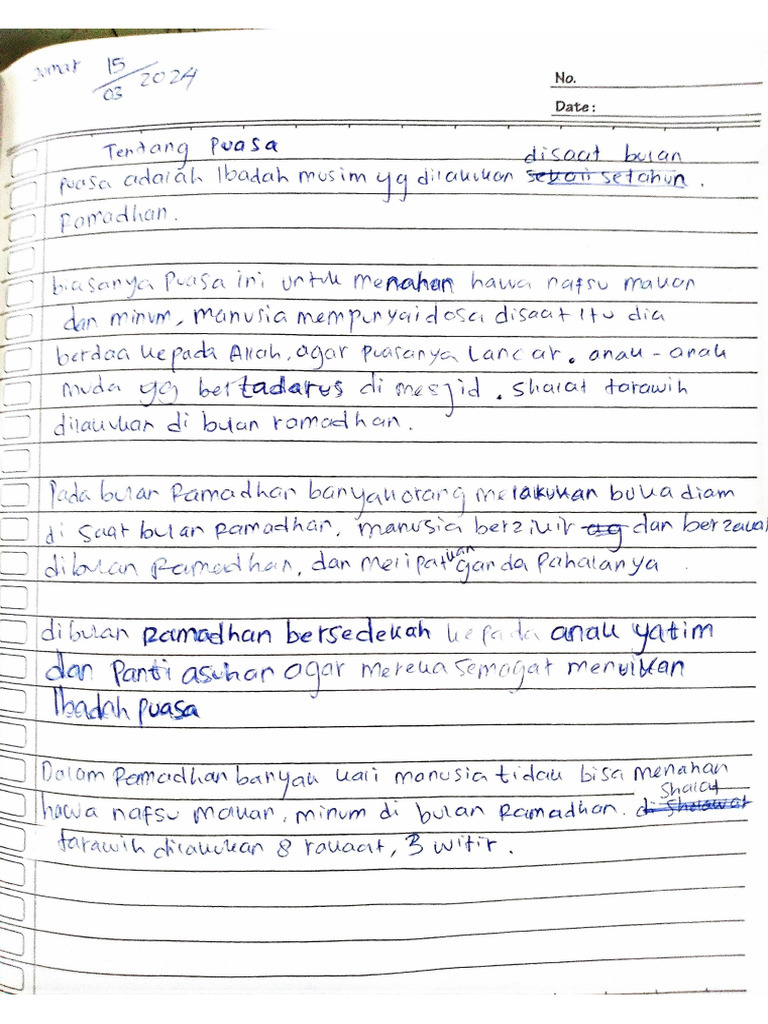 Jumat 15/03/2024
No.
Date:
Tentang Puasa
disaat bulan
puasa adalah Ibadah musim yg dilakukan sekali setahun.
Ramadhan.
biasanya Puasa ini untuk menahan hawa nafsu makan
dan minum, manusia mempunyai dosa disaat Itu dia
berdaa kepada Allah, agar puasanya Lancar. anak-anak
muda yg bertadarus di mesjid. Shalat tarawih
dilakukan di bulan ramadhan.
Pada bulan Ramadhan banyak orang melakukan buka diam
di saat bulan Ramadhan, manusia berzikir dan berzakat
dibulan Ramadhan, dan melipatkan ganda Pahalanya
dibulan Ramadhan bersedekah kepada anak yatim
dan Panti asuhan agar mereka semagat
Ibadah puasa
Dalam Ramadhan banyak kari manusia tidak bisa menahan
Shalat
hawa nafsu makan, minum di bulan Ramadhan. di Sholawat
tarawih dilakukan 8 rakaat, 3 witir.